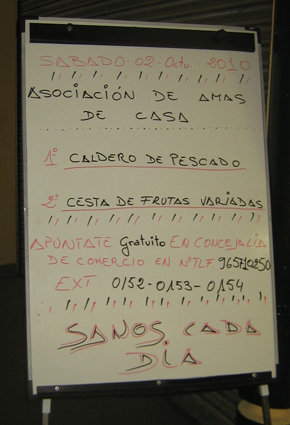 SABADO · 02 · Octu · 2010
ASOCIACIÓN DE AMAS
DE CASA
1º CALDERO DE PESCADO
2º CESTA DE FRUTAS VARIADAS
APUNTATE Gratuito EN CONCEJALIA
DE COMERCIO EN NºTLF. 965710250
EXT 0152-0153-0154
SANOS CADA
DIA